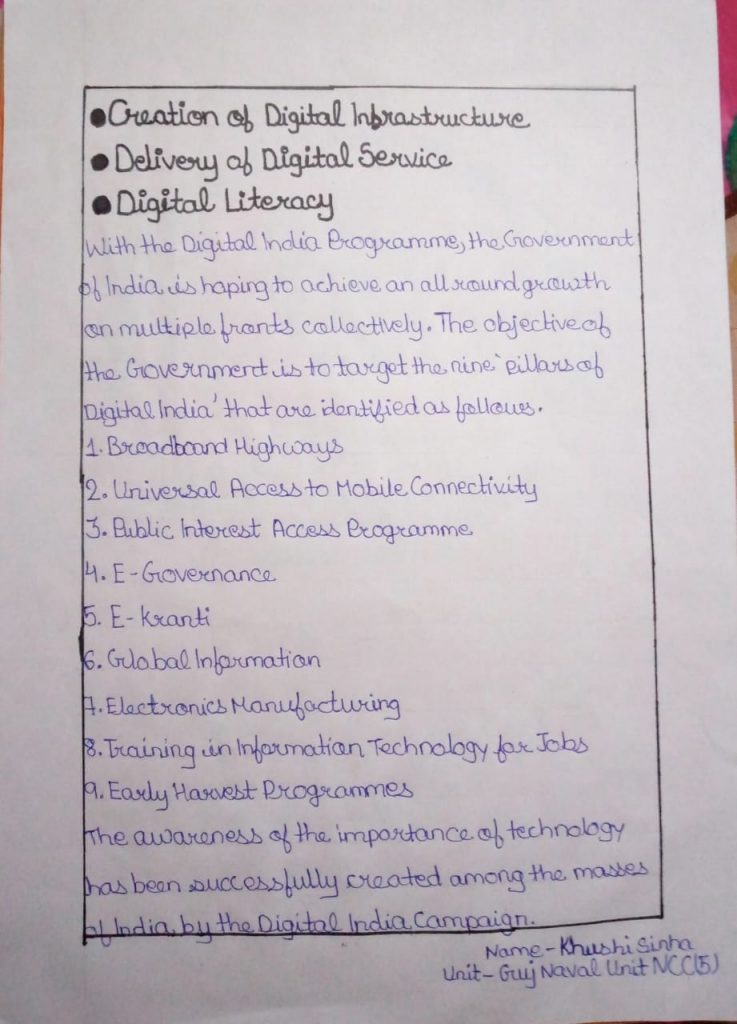 ●Creation of Digital Infrastructure
●Delivery of Digital Service
●Digital Literacy
With the Digital India Programme, the Government
of India is hoping to achieve an all round growth
on multiple fronts collectively. The objective of
the Government is to target the nine 'pillars of
Digital India' that are identified as follows.
1. Broadband Highways
2. Universal Access to Mobile Connectivity
3. Public Interest Access Programme
4. E-Governance
5. E-kranti
6. Global Information
7. Electronics Manufacturing
8. Training in Information Technology for Jobs
9. Early Harvest Programmes
The awareness of the importance of technology
has been successfully created among the masses
of India by the Digital India Campaign.
Name-Khushi Sinha
Unit-Guj Naval Unit NCC(5)